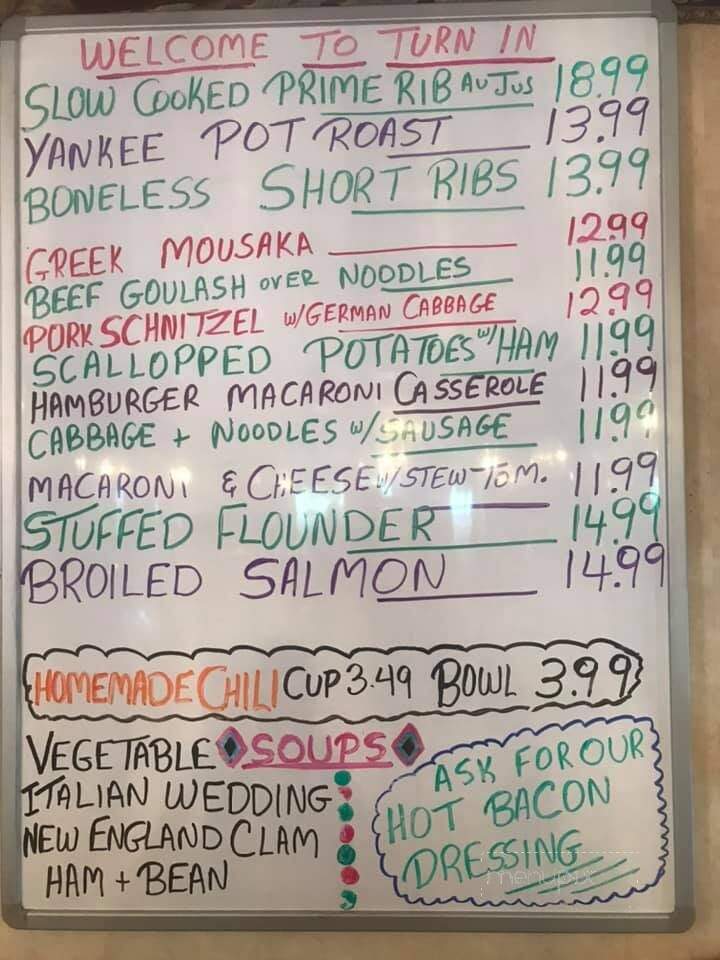 WELCOME TO TURN IN
SLOW COOKED PRIME RIB AU JUS 18.99
YANKEE POT ROAST 13.99
BONELESS SHORT RIBS 13.99
GREEK MOUSAKA 12.99
BEEF GOULASH OVER NOODLES 11.99
PORK SCHNITZEL W/GERMAN CABBAGE 12.99
SCALLOPPED POTATOES W/HAM 11.99
HAMBURGER MACARONI CASSEROLE 11.99
CABBAGE + NOODLES W/SAUSAGE 11.99
MACARONI & CHEESE W/STEW-TOM. 11.99
STUFFED FLOUNDER 14.99
BROILED SALMON 14.99
HOMEMADE CHILI CUP 3.49 BOWL 3.99
VEGETABLE SOUPS
ITALIAN WEDDING
NEW ENGLAND CLAM
HAM + BEAN
ASK FOR OUR
HOT BACON
DRESSING
menupix